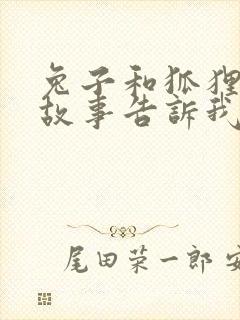 兔子和狐狸
故事告訴我
尾田荣一郎 安